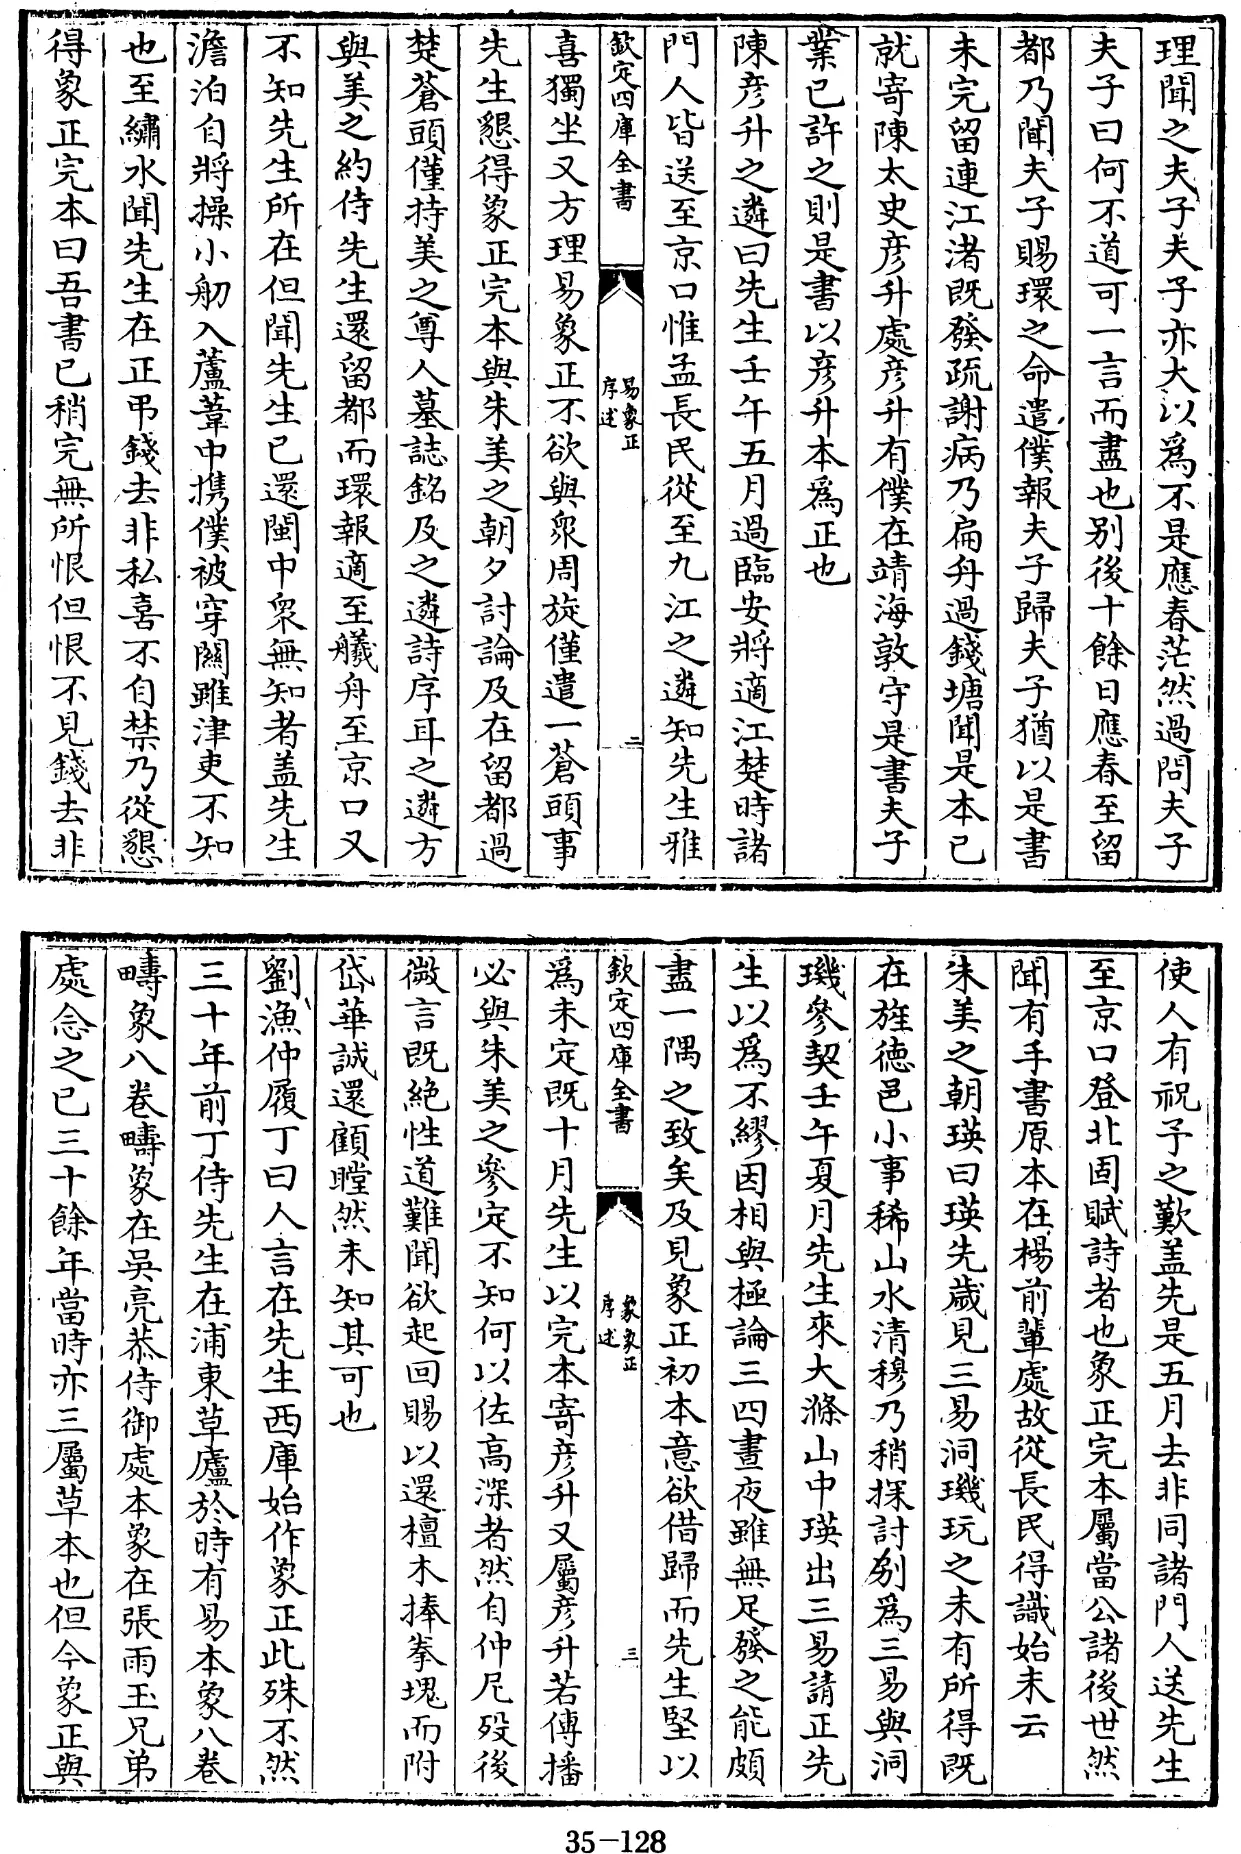 理聞之夫子夫子亦大以為不是應春茫然過問夫子
夫子曰何不道可一言而盡也别後十餘日應春至留
都乃聞夫子賜環之命遣僕報夫子歸夫子猶以是書
未完留連江渚既發疏謝病乃扁舟過錢塘聞是本已
就寄陳太史彦升處彦升有僕在靖海敦守是書夫子
業已許之則是書以彦升本為正也
陳彦升之遴曰先生壬午五月過臨安將適江楚時諸
門人皆送至京口惟孟長民從至九江之遴知先生雅
欽定四庫全書
易象正
序述
二
喜獨坐又方理易象正不欲與衆周旋僅遣一蒼頭事
先生懇得象正完本與朱美之朝夕討論及在留都過
楚蒼頭僅持美之尊人墓誌銘及之遴詩序耳之遴方
與美之約侍先生還留都而環報適至艤舟至京口又
不知先生所在但聞先生已還閩中衆無知者盖先生
澹泊自將操小舠入蘆葦中携僕被穿闗雖津吏不知
也至繡水聞先生在正弔錢去非私喜不自禁乃從懇
得象正完本曰吾書已稍完無所恨但恨不見錢去非
使人有祝子之歎盖先是五月去非同諸門人送先生
至京口登北固賦詩者也象正完本屬當公諸後世然
聞有手書原本在楊前輩處故從長民得識始末云
朱美之朝瑛曰瑛先歲見三易洞璣玩之未有所得既
在旌德邑小事稀山水清穆乃稍探討别為三易與洞
璣參契壬午夏月先生來大滌山中瑛出三易請正先
生以為不繆因相與極論三四晝夜雖無足發之能頗
盡一隅之致矣及見象正初本意欲借歸而先生堅以
欽定四庫全書
象象正
序述
三
為未定既十月先生以完本寄彦升又屬彦升若傳播
必與朱美之參定不知何以佐高深者然自仲尼殁後
微言既絶性道難聞欲起回賜以還檀木捧拳塊而附
岱華誠還顧瞠然未知其可也
劉漁仲履丁曰人言在先生西庫始作象正此殊不然
三十年前丁侍先生在浦東草廬於時有易本象八卷
疇象八卷疇象在吳亮恭侍御處本象在張雨玉兄弟
處念之已三十餘年當時亦三屬草本也但今象正與
35-128